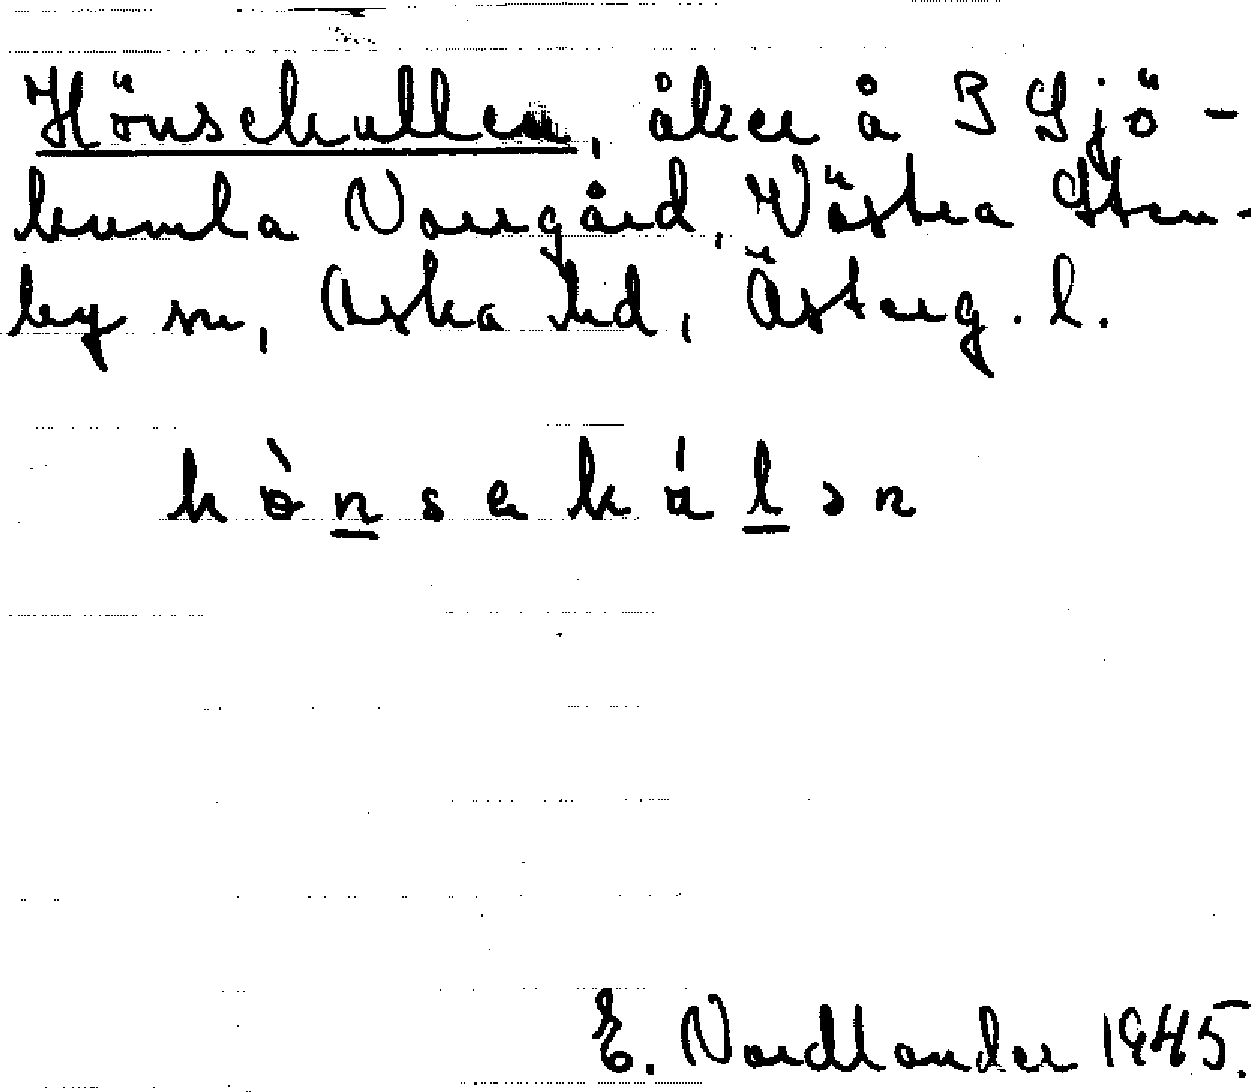 Hönsekullen, åker å 3 Sjö-
kumla Norrgård, Västra Sten-
by sn, Aska hd, Österg. l.
hò̀nsekúlən
E. Nordlander 1945.